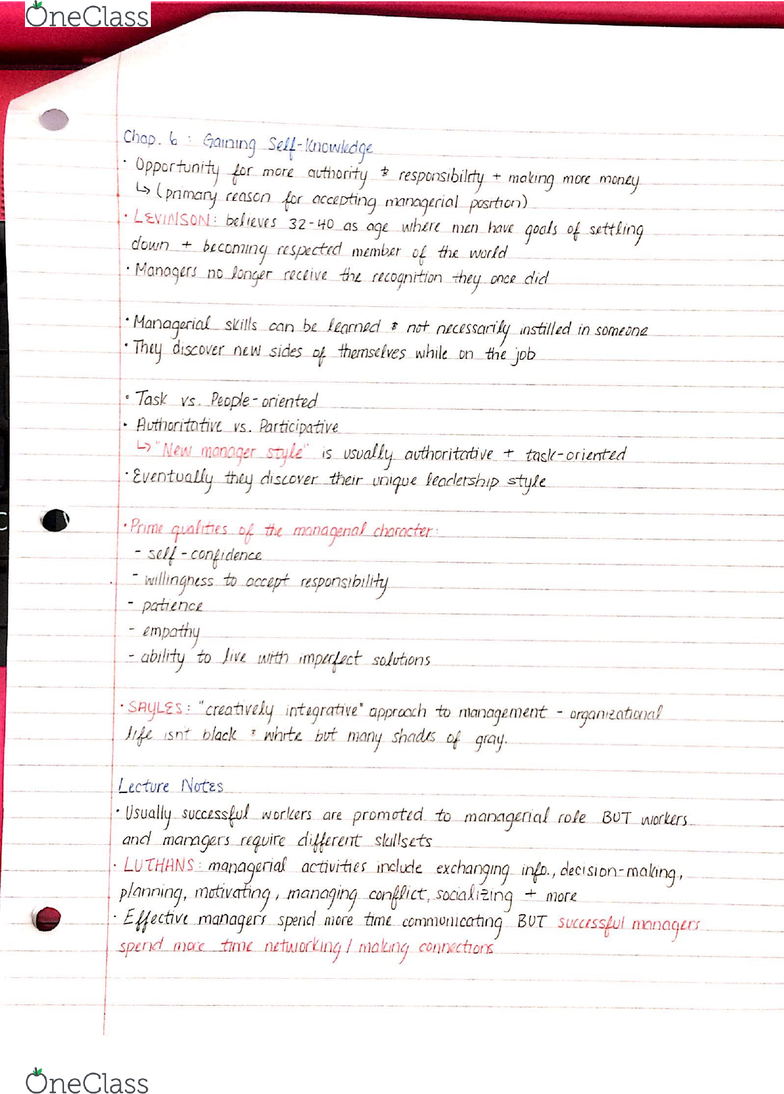 OneClass
Chap. 6 : Gaining Self-Knowledge
• Opportunity for more authority & responsibility + making more money
↳ (primary reason for accepting managerial position)
• LEVINSON: believes 32-40 as age where men have goals of settling
down + becoming respected member of the world
• Managers no longer receive the recognition they once did
• Managerial skills can be learned & not necessarily instilled in someone
• They discover new sides of themselves while on the job
• Task vs. People-oriented
• Authoritative vs. Participative
↳ "New manager style" is usually authoritative + task-oriented
• Eventually they discover their unique leadership style
• Prime qualities of the managerial character:
- self-confidence
- willingness to accept responsibility
- patience
- empathy
- ability to live with imperfect solutions
• SAYLES: "creatively integrative" approach to management - organizational
life isnt black & white but many shades of gray.
Lecture Notes
• Usually successful workers are promoted to managerial role BUT workers
and managers require different skillsets
• LUTHANS: managerial activities include exchanging info., decision-making,
planning, motivating, managing conflict, socializing + more
• Effective managers spend more time communicating BUT successful managers
spend more time networking / making connections
OneClass